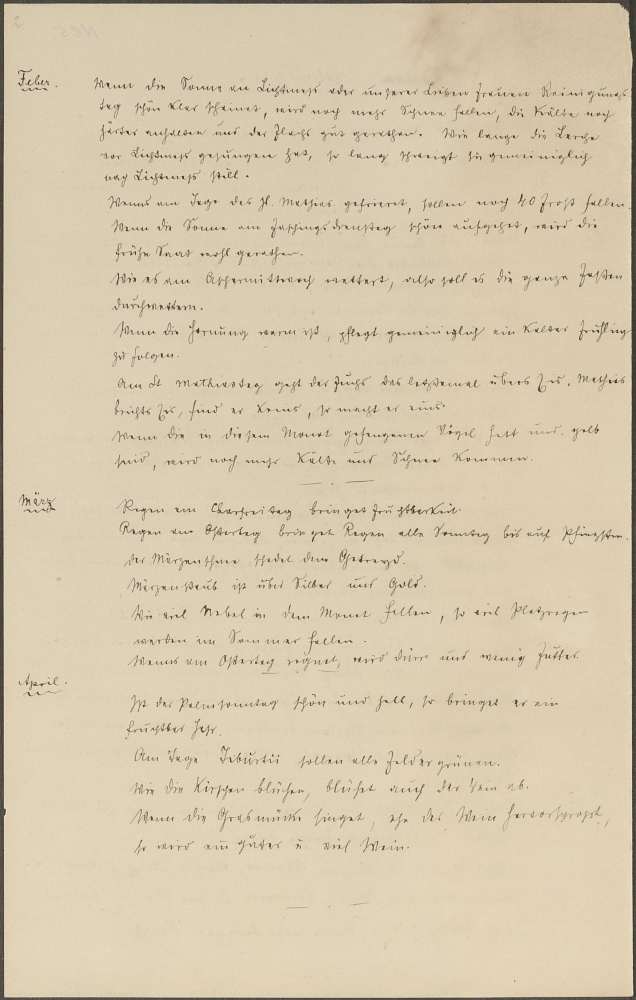 Feber.
Wenn die Sonne an Lichtmeß oder unserer lieben Frauen Reinigungs
tag schön klar scheinet, wird noch mehr Schnee fallen, die Kälte noch
härter anhalten und der Flachs gut gerathen. Wie lange die Lerche
vor Lichtmeß gesungen hat, so lang schweigt sie gemeiniglich
nach Lichtmeß still.
Wenns am Tage des hl. Mathias gefrieret, sollen noch 40 Fröst fallen.
Wenn die Sonne am Faschingsdienstag schön aufgehet, wird die
frühe Saat wohl gerathen.
Wie es am Aschermittwoch wettert, also soll es die ganze Fasten
durchwettern.
Wenn die Hornung warm ist, pflegt gemeiniglich ein kalter Frühling
zu folgen.
Am St. Mathiastag geht der Fuchs das letztemal übers Eis, Mathias
brichts Eis, find er keins, so macht er eins.
Wenn die in diesem Monat gefangenen Vögel fett und gelb
sind, wird noch mehr Kälte und Schnee kommen.
März
Regen am Charfreitag bringet Fruchtbarkeit.
Regen am Ostertag bringet Regen alle Sonntag bis auf Pfingsten.
Der Märzenschnee schadet dem Getreyd.
Märzenstaub ist über Silber und Gold.
Wie viel Nebel in dem Monat fallen, so viel Platzregen
werden im Sommer fallen.
Wenns am Ostertag regnet, wird dürr und wenig Futter.
April.
Ist der Palmsonntag schön und hell, so bringet er ein
fruchtbar Jahr.
Am Tage Tiburtii sollen alle Felder grünen.
Wie die Kirschen blühen, blühet auch der Wein ab.
Wenn die Grasmücke singet, ehe der Wein hervorsproßt,
so wird ein guter u. viel Wein.